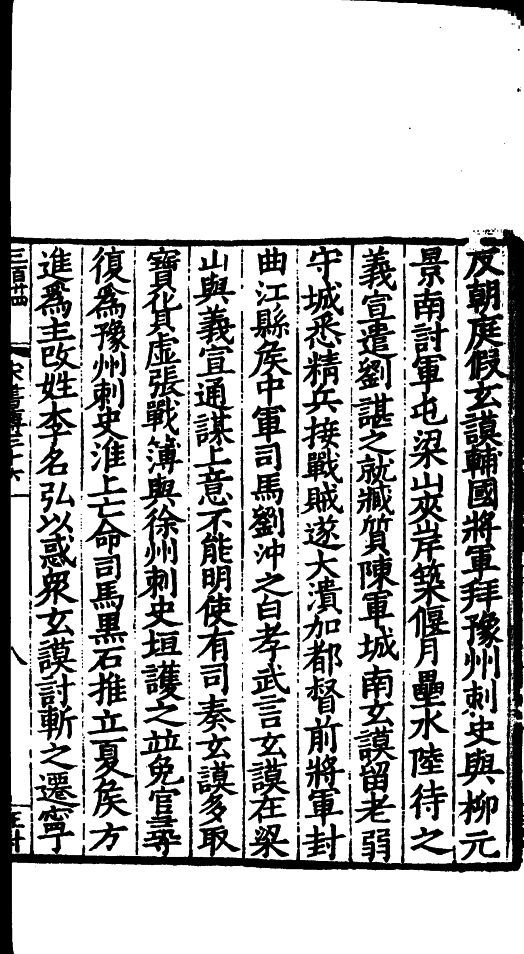 反朝庭假玄謨輔國將軍拜豫州刺史與柳元
景南討軍屯梁山夾岸築偃月壘水陸待之
義宣遣劉諶之就臧質陳軍城南玄謨留老弱
守城悉精兵接戰賊遂大潰加都督前將軍封
曲江縣矦中軍司馬劉沖之白孝武言玄謨在梁
山與義宣通謀上意不能明使有司奏玄謨多取
寶貨虛張戰簿與徐州刺史垣護之並免官尋
復爲豫州刺史淮上亡命司馬黑石推立夏矦方
進爲主改姓李名弘以惑衆玄謨討斬之遷寧